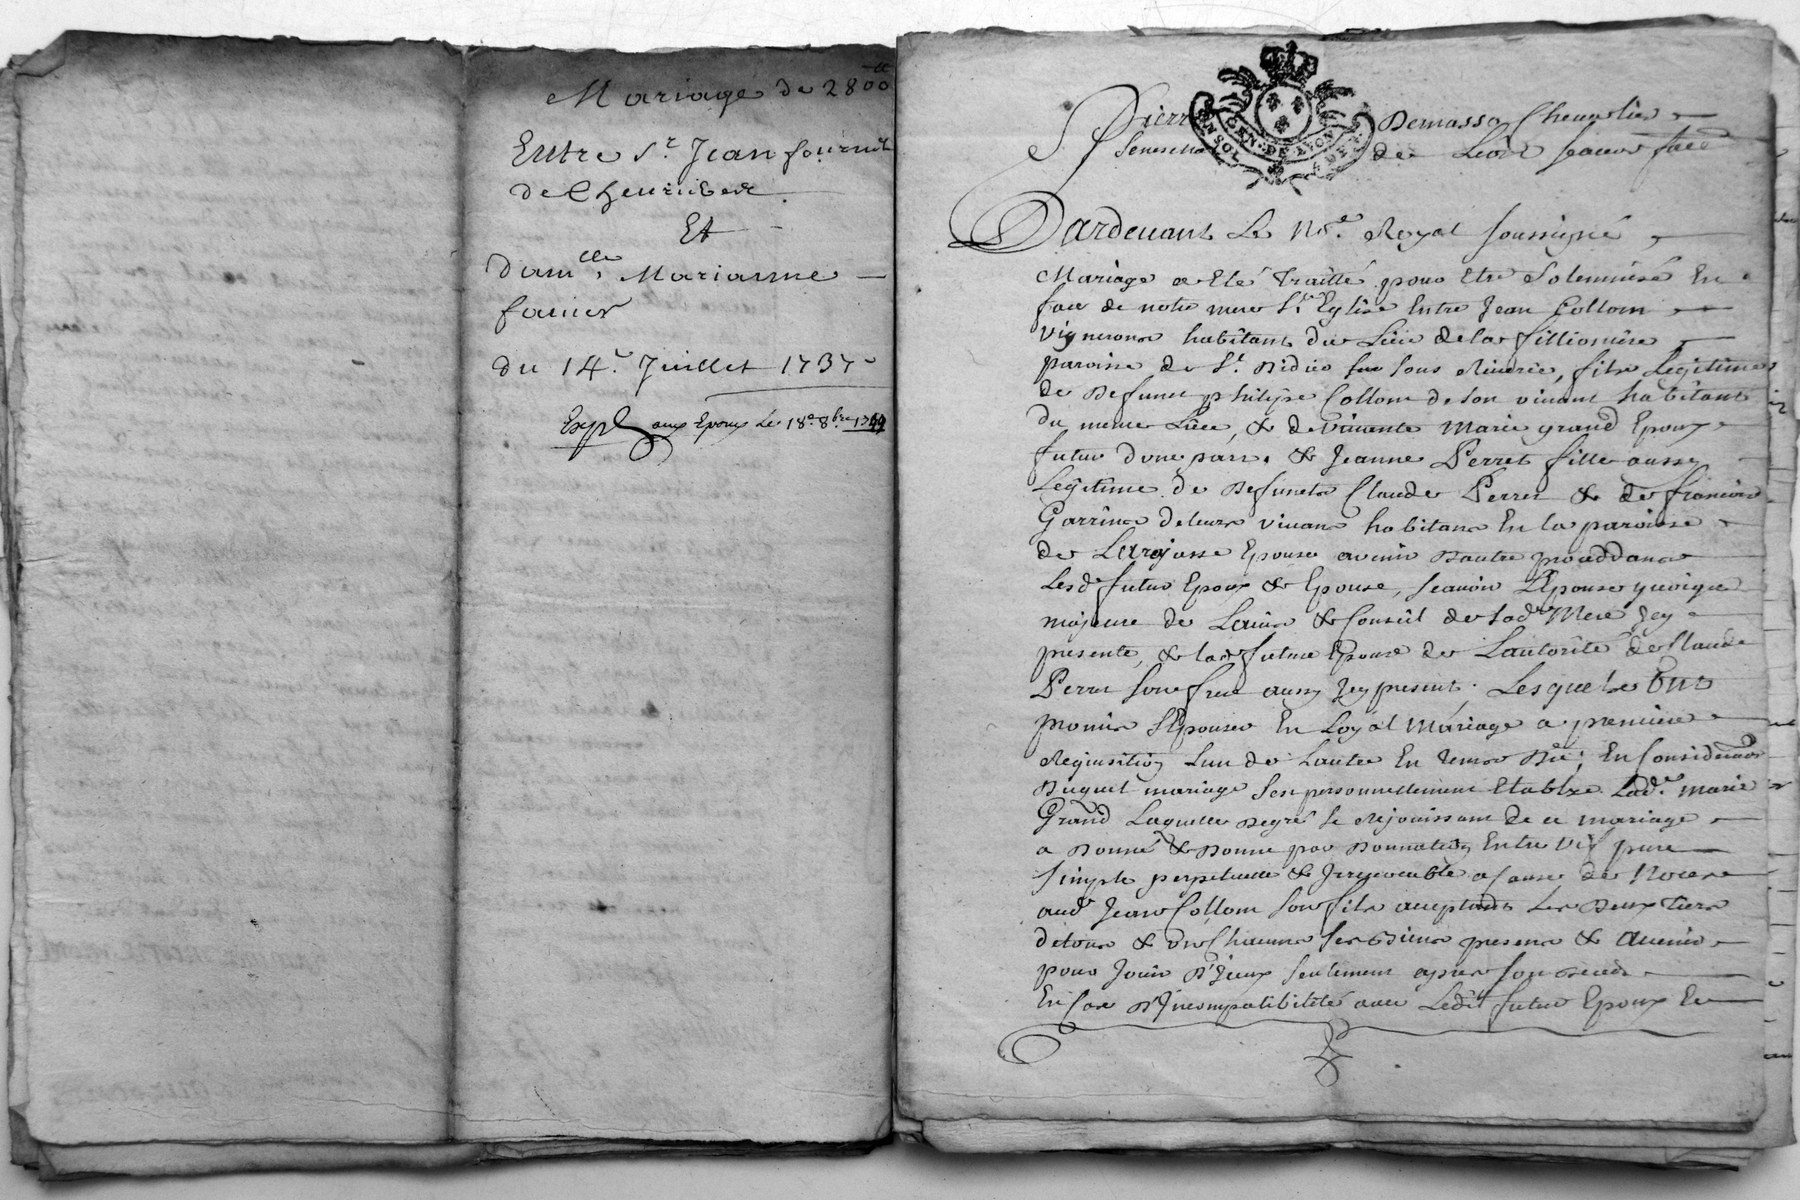 Mariage de 2800ᵗᵗ
Entre Sʳ. Jean fournit
de Cheurieres
Et
Damˡˡᵉ. Marianne
fauier
du 14ᵉ. Juillet 1737
Expᵉ aux Epoux Le 18ᵉ 8bre
Pierre Demasso Chevalier
Senechal de Lion scavoir fais
GEN. DE LYON
Pardevant Le Noʳᵉ. Royal soussigné
Mariage a Eté traitté pour Etre Solennisé En
face de notre mere Sᵗᵉ Eglise Entre Jean Collom
vigneron habitant du Lieu de la fillionière
paroisse de Sᵗ. Didier sous Riverie, fils Legitime
de Defunct philipe Collom de son vivant habitant
du meme Lieu, & de vivante Marie grand Epoux
futur d'une part. & Jeanne Perret fille aussy
Legitime de Defuncts Claude Perret & de francoise
Garrina de leurs vivans habitans En la paroisse
de Larajasse Epouse avenir d'autre procedans
Lesdᵗ futur Epoux & Epouse, scavoir L'Epoux quoique
majeure de L'avis & Conseil de sadᵉ Mere Jcy
presente, & ladᵉ future Epouse de L'autorité de Claude
Perret son frere aussy Jcy present. Lesquels ont
promis S'Epouser En Loyal Mariage a premiere
Requisition L'un de L'autre En tems Dû; En Consideration
Duquel mariage s'est personnellement Etablie Ladᵉ. marie
Grand Laquelle de gré se Rejouissant de ce mariage
a Donné & Donne par Donnation Entre vif pure
simple perpetuelle & Jrrevocable a Cause de Noces
audᵗ Jean Collom son fils acceptant Les Deux tiers
de tous & un Chacuns ses Biens presens & avenir
pour Jouir D'Jceux seulement apres son deces
En Cas D'Jncompatibilité avec Ledit futur Epoux Et